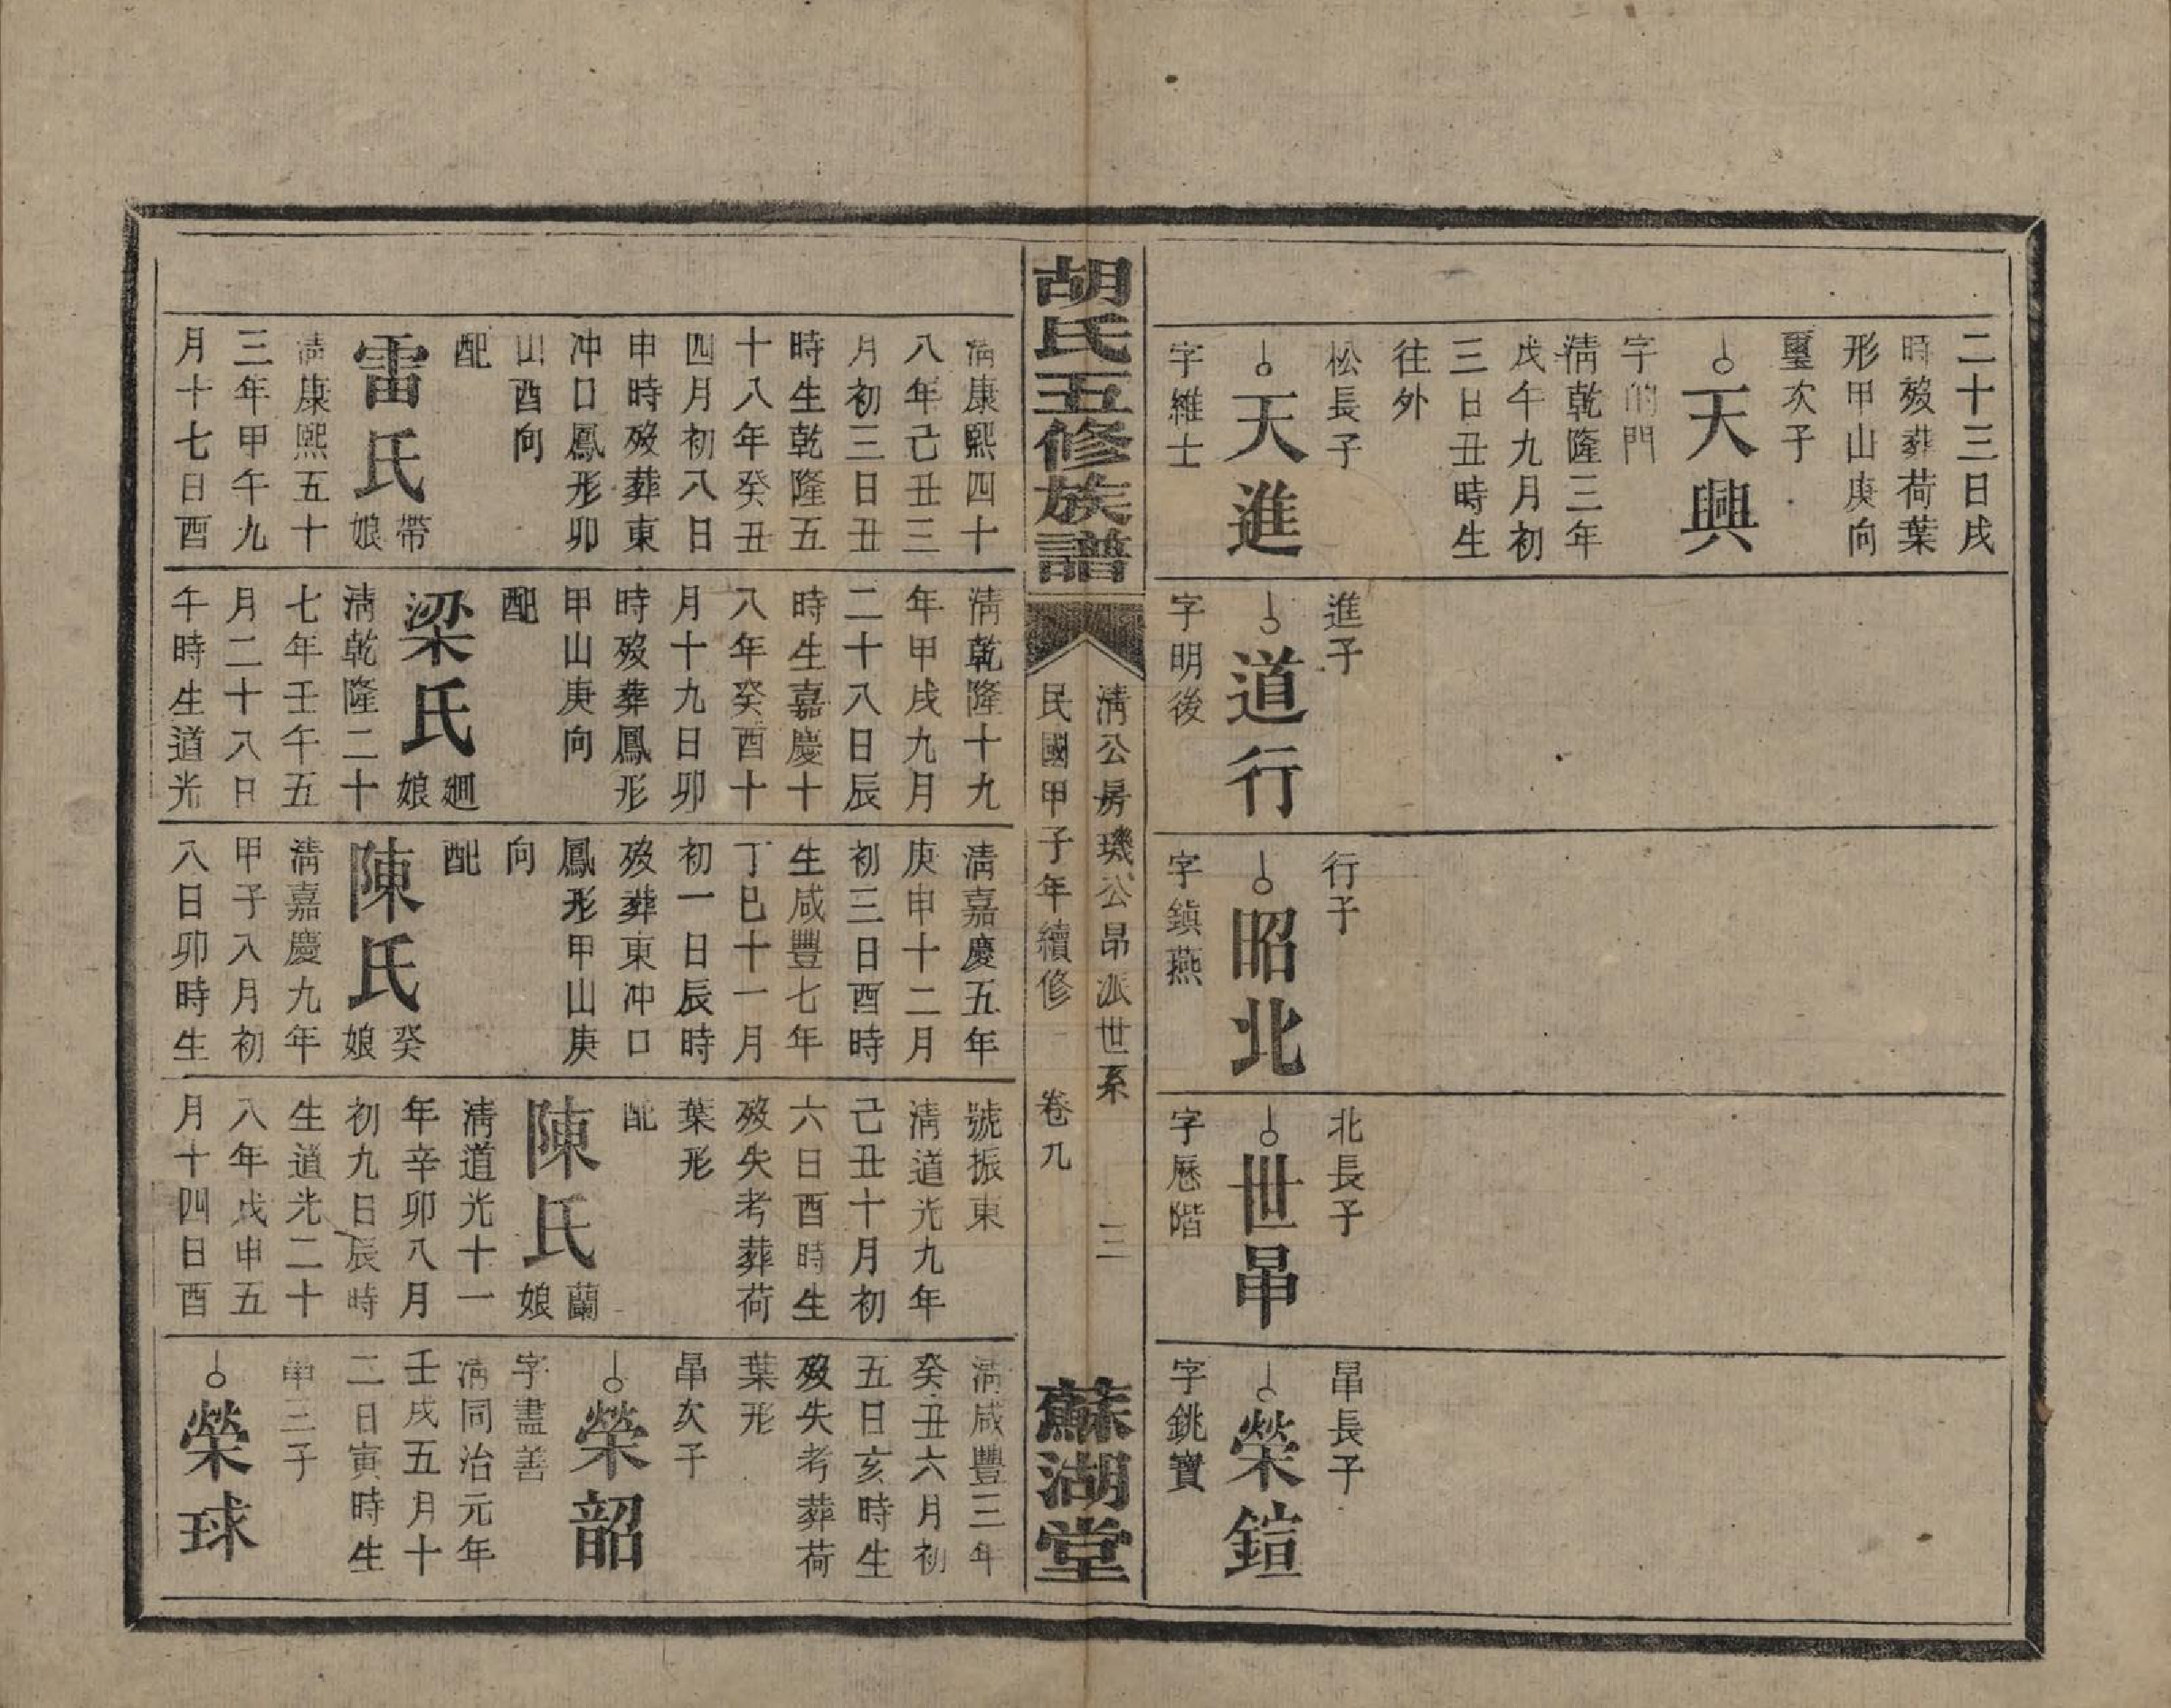 二十三日戌
時歿葬荷葉
形甲山庚向
璽次子
天興
字的門
淸乾隆三年
戊午九月初
三日丑時生
往外
松長子
天進
字維士
進子
道行
字明後
行子
昭北
字鎮燕
北長子
世㫷
字應階
㫷長子
榮鍹
字銚寶
胡氏五修族譜
淸公房璣公昂派世系
三
民國甲子年續修
卷九
蘇湖堂
淸康熙四十
八年己丑三
月初三日丑
時生乾隆五
十八年癸丑
四月初八日
申時歿葬東
冲口鳳形卯
山酉向
配
雷氏
帶
娘
淸康熙五十
三年甲午九
月十七日酉
淸乾隆十九
年甲戌九月
二十八日辰
時生嘉慶十
八年癸酉十
月十九日卯
時歿葬鳳形
甲山庚向
配
梁氏
廻
娘
淸乾隆二十
七年壬午五
月二十八日
午時生道光
淸嘉慶五年
庚申十二月
初三日酉時
生咸豐七年
丁巳十一月
初一日辰時
歿葬東冲口
鳳形甲山庚
向
配
陳氏
癸
娘
淸嘉慶九年
甲子八月初
八日卯時生
號振東
淸道光九年
己丑十月初
六日酉時生
歿失考葬荷
葉形
配
陳氏
蘭
娘
淸道光十一
年辛卯八月
初九日辰時
生道光二十
八年戊申五
月十四日酉
淸咸豐三年
癸丑六月初
五日亥時生
歿失考葬荷
葉形
㫷次子
榮韶
字盡善
淸同治元年
壬戌五月十
二日寅時生
㫷三子
榮球